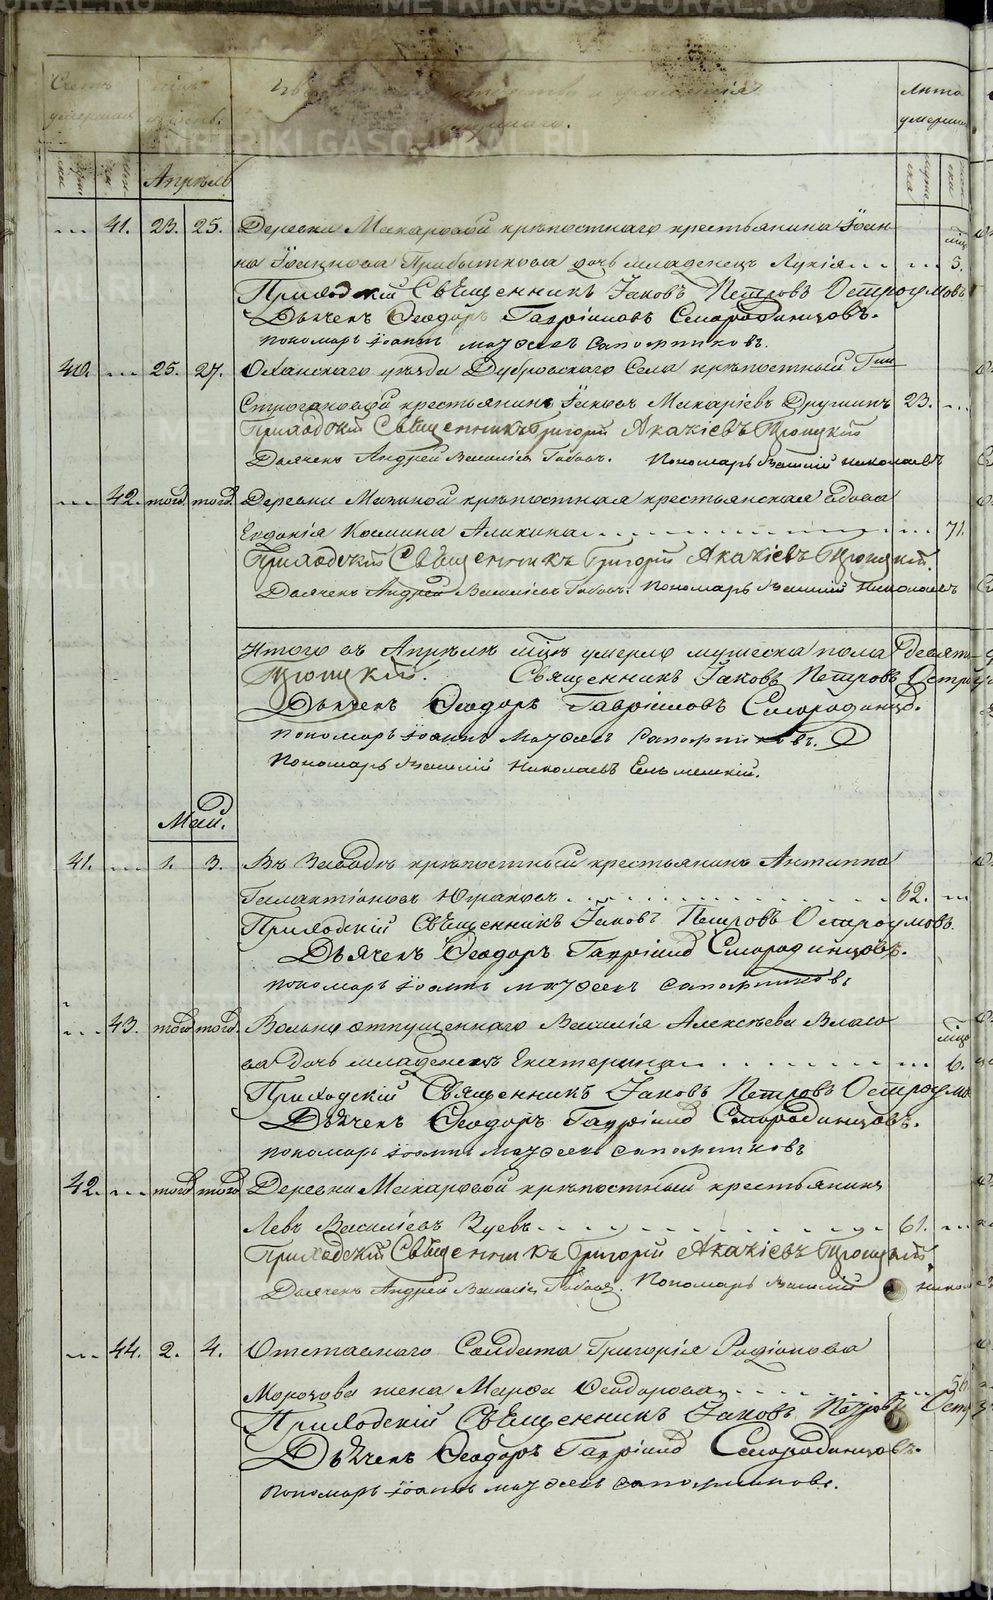 METRIKI.GASO-URAL.RU
Счетъ
умершихъ
Лѣта
умерших
Апрѣль
41. 23. 25. Деревни Макаровой крѣпостнаго крестьянина Іоан-
на Іоаннова Прибыткова дочь младенецъ Лукія мцъ 3.
Приходскій Священникъ Іаковъ Петровъ Остроумовъ
Дьячекъ Ѳеодоръ Гавріиловъ Смородинцовъ.
пономарь Іоаннъ Матфеевъ Сапожниковъ.
40. 25. 27. Оханскаго уѣзда Дубровскаго Села крѣпостный Гпи
Строгановой крестьянинъ Іаковъ Макаріевъ Другинъ 23.
Приходскій Священникъ Григорій Акакіевъ Троицкій
Дьячекъ Андрей Василіев Пономарь Василій Николаевъ
42. тогѡ. тогѡ. Деревни крѣпостная крестьянская вдова
Евдокія Космина Аликина 71.
Приходскій Священникъ Григорій Акакіевъ Троицкій.
Дьячекъ Андрей Василіевъ Пономарь Василій Николаевъ
Итого въ Апрѣлѣ мцѣ умерло мужеска пола десять
Троицкій. Священникъ Іаковъ Петровъ Остроу
Дьячекъ Ѳеодоръ Гавріиловъ Смородинцов.
пономарь Іоаннъ Матфеевъ Сапожниковъ.
Пономарь Василій Николаевъ
Маій.
41. 1. 3. Въ Заводѣ крѣпостный крестьянинъ Антиппа
Галактіоновъ Югановъ 62.
Приходскій Священникъ Іаковъ Петровъ Остроумовъ.
Дьячекъ Ѳеодоръ Гавріилов Смородинцовъ.
пономарь Іоаннъ Матфеевъ Сапожниковъ
43. тогѡ тогѡ. Вольно отпущеннаго Василія Алексѣева Власо
ва дочь младенецъ Екатерина мцъ 6.
Приходскій Священникъ Іаковъ Петровъ Остроумо
Дьячекъ Ѳеодоръ Гавріилов Смородинцовъ.
пономарь Іоаннъ Матфеевъ Сапожниковъ
42. тогѡ тогѡ Деревни Макаровой крѣпостный крестьянинъ
Левъ Василіевъ Зуевъ 61.
Приходскій Священникъ Григорій Акакіевъ Троицкій.
Дьячекъ Андрей Василіев Пономарь Василій Никола
44. 2. 4. Отставнаго Солдата Григорія Родіонова
Морозова жена Марѳа Ѳеодорова 56
Приходскій Священникъ Іаковъ Петровъ Остр
Дьячекъ Ѳеодоръ Гавріилов Смородинцовъ.
пономарь Іоаннъ Матфеевъ Сапожниковъ.
METRIKI.GASO-URAL.RU